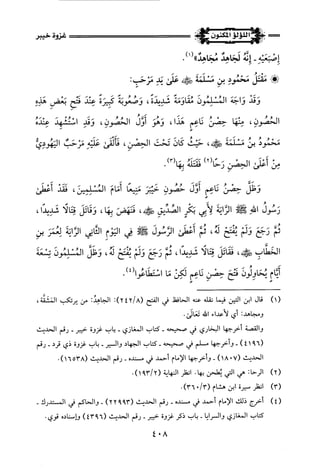 اللؤلؤ المكنون
غزوة خيبر
إِصْبَعَيْهِ - إِنَّهُ لَجَاهِدٌ مُجَاهِدٌ»(١).
* مَقْتَلُ مَحْمُودِ بنِ مَسْلَمَةَ ﷺ عَلَى يَدِ مَرْحَبٍ:
وَقَدْ وَاجَهَ الْمُسْلِمُونَ مُقَاوَمَةً شَدِيدَةً، وَصُعُوبَةً كَبِيرَةً عِنْدَ فَتْحِ بَعْضِ هَذِهِ
الحُصُونِ، مِنْهَا حِصْنُ نَاعِمٍ هَذَا، وَهُوَ أَوَّلُ الحُصُونِ، وَقَدِ اسْتُشْهِدَ عِنْدَهُ
مَحْمُودُ بنُ مَسْلَمَةَ ﷺ، حَيْثُ كَانَ تَحْتَ الحِصْنِ، فَأَلْقَى عَلَيْهِ مَرْحَبٌ اليَهُودِيُّ
مِنْ أَعْلَى الحِصْنِ رَحًا(٢) فَقَتَلَهُ بِهَا(٣).
وَظَلَّ حِصْنُ نَاعِمٍ أَوَّلَ حُصُونِ خَيْبَرَ مَنِيعًا أَمَامَ الْمُسْلِمِينَ، فَقَدْ أَعْطَى
رَسُولُ اللهِ ﷺ الرَّايَةَ لِأَبِي بَكْرٍ الصِّدِّيقِ ﷺ، فَنَهَضَ بِهَا، وَقَاتَلَ قِتَالًا شَدِيدًا،
ثُمَّ رَجَعَ وَلَمْ يُفْتَحْ لَهُ، ثُمَّ أَعْطَى الرَّسُولُ ﷺ فِي اليَوْمِ الثَّانِي الرَّايَةَ لِعُمَرَ بنِ
الخَطَّابِ ﷺ، فَقَاتَلَ قِتَالًا شَدِيدًا، ثُمَّ رَجَعَ وَلَمْ يُفْتَحْ لَهُ، وَظَلَّ الْمُسْلِمُونَ تِسْعَةَ
أَيَّامٍ يُحَاوِلُونَ فَتْحَ حِصْنِ نَاعِمٍ لَكِنْ مَا اسْتَطَاعُوا(٤).
(١) قال ابن التين فيما نقله عنه الحافظ في الفتح (٢٤٢/٨): الجاهِدُ: من يرتكب المَشَقَّة،
ومجاهد: أي لأعداء الله تعالى.
والقصة أخرجها البخاري في صحيحه ـ كتاب المغازي ـ باب غزوة خيبر ـ رقم الحديث
(٤١٩٦) ـ وأخرجها مسلم في صحيحه ـ كتاب الجهاد والسير ـ باب غزوة ذي قرد ـ رقم
الحديث (١٨٠٧) ـ وأخرجها الإمام أحمد في مسنده ـ رقم الحديث (١٦٥٣٨).
(٢) الرحا: هي التي يُطحن بها. انظر النهاية (١٩٣/٢).
(٣) انظر سيرة ابن هشام (٣٦٠/٣).
(٤) أخرج ذلك الإمام أحمد في مسنده ـ رقم الحديث (٢٢٩٩٣) ـ والحاكم في المستدرك ـ
كتاب المغازي والسرايا ـ باب ذكر غزوة خيبر ـ رقم الحديث (٤٣٩٦) وإسناده قوي.
٤٠٨